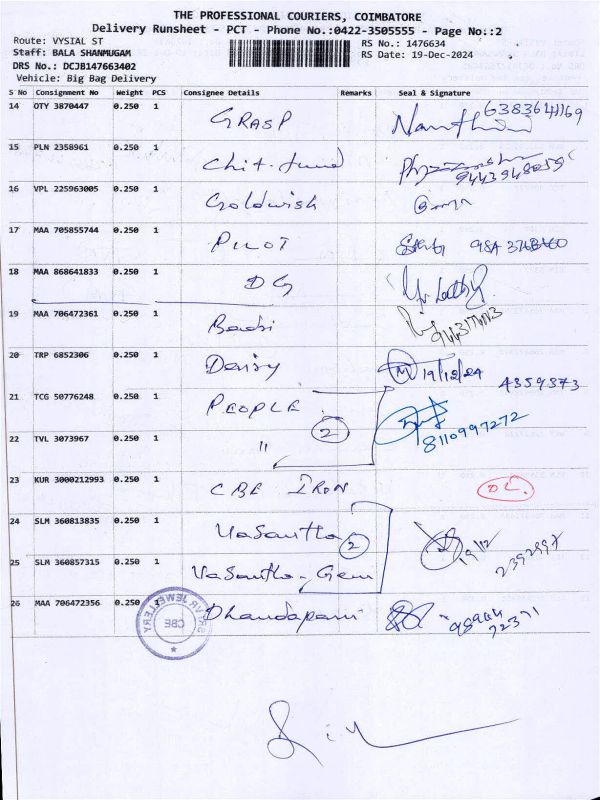 THE PROFESSIONAL COURIERS, COIMBATORE
Delivery Runsheet - PCT - Phone No.:0422-3505555 - Page No.:2
Route: VYSIAL ST
Staff: BALA SHANMUGAM
DRS No.: DCJB147663402
Vehicle: Big Bag Delivery
RS No.: 1476634
RS Date: 19-Dec-2024
S No Consignment No Weight PCS Consignee Details Remarks Seal & Signature
14 OTY 3870447 0.250 1 GRASP 6383641169
15 PLN 2358961 0.250 1 Chit-fund 9443948059
16 VPL 225963005 0.250 1 Goldwish
17 MAA 705855744 0.250 1 PILOT
18 MAA 868641833 0.250 1 DG
19 MAA 706472361 0.250 1 Badri
20 TRP 6852306 0.250 1 Daisy 19/12/24 4359373
21 TCG 50776248 0.250 1 PEOPLE 2 8110997272
22 TVL 3073967 0.250 1 "
23 KUR 3000212993 0.250 1 CBE IRON
24 SLM 360813835 0.250 1 Vasantha 2 19/12 2392997
25 SLM 360857315 0.250 1 Vasantha-Gem
26 MAA 706472356 0.250 1 Dhandapani 98944 72371
VR JEWELLERY
CBE